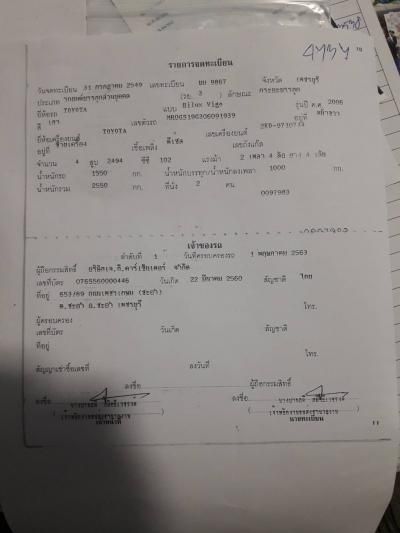 10
รายการจดทะเบียน
วันจดทะเบียน 31 กรกฎาคม 2549 เลขทะเบียน บบ 9867 จังหวัด เพชรบุรี
ประเภท รถยนต์บรรทุกส่วนบุคคล (รย. 3 ) ลักษณะ กระบะบรรทุก
ยี่ห้อรถ TOYOTA แบบ Hilux Vigo รุ่นปี ค.ศ. 2006
สี เทา เลขตัวรถ MR0GS19G306091939 อยู่ที่
ยี่ห้อเครื่องยนต์ TOYOTA เลขเครื่องยนต์
อยู่ที่ เชื้อเพลิง ดีเซล เลขถังแก๊ส
จำนวน 4 สูบ 2494 ซีซี 102 แรงม้า 2 เพลา 4 ล้อ ยาง 4 เส้น
น้ำหนักรถ 1550 กก. น้ำหนักบรรทุก/น้ำหนักลงเพลา 1000 กก.
น้ำหนักรวม 2550 กก. ที่นั่ง 2 คน
0097983
เจ้าของรถ
ลำดับที่ 1 วันที่ครอบครองรถ 1 พฤษภาคม 2563
ผู้ถือกรรมสิทธิ์ จำกัด
เลขที่บัตร 0765560000446 วันเกิด 22 มีนาคม 2560 สัญชาติ ไทย
ที่อยู่ 653/69 ถนนเพชรเกษม (ชะอำ)
ต.ชะอำ อ.ชะอำ เพชรบุรี โทร.
ผู้ครอบครอง
เลขที่บัตร วันเกิด สัญชาติ
ที่อยู่
โทร.
สัญญาเช่าซื้อเลขที่ ลงวันที่
ลงชื่อ ผู้ถือกรรมสิทธิ์
ลงชื่อ ลงชื่อ
นายทะเบียน
11